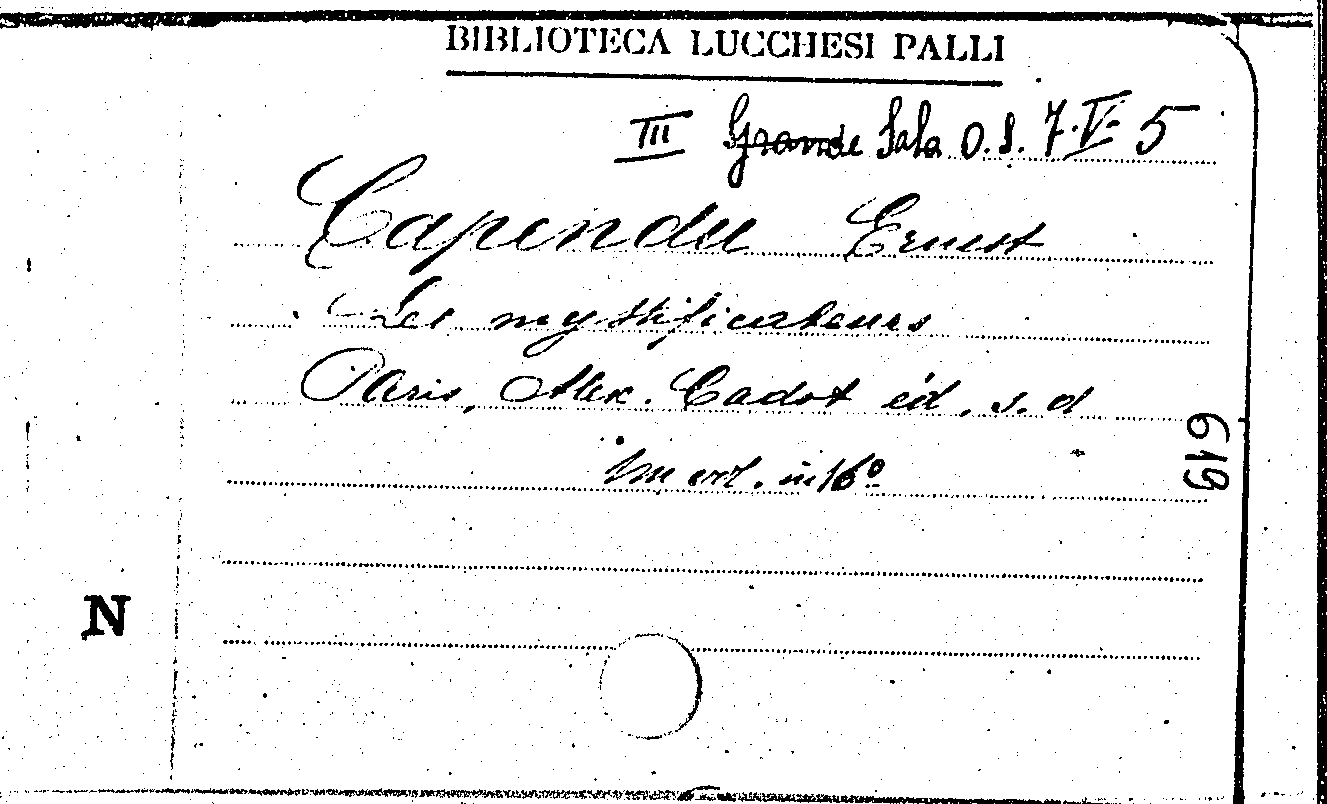 BIBLIOTECA LUCCHESI PALLI
III Grande Sala O.S. 7.V.5
Capendu Ernest
Les mystificateurs
Paris, Alex. Cadot éd. s. d
Un vol. in 16º
619
N